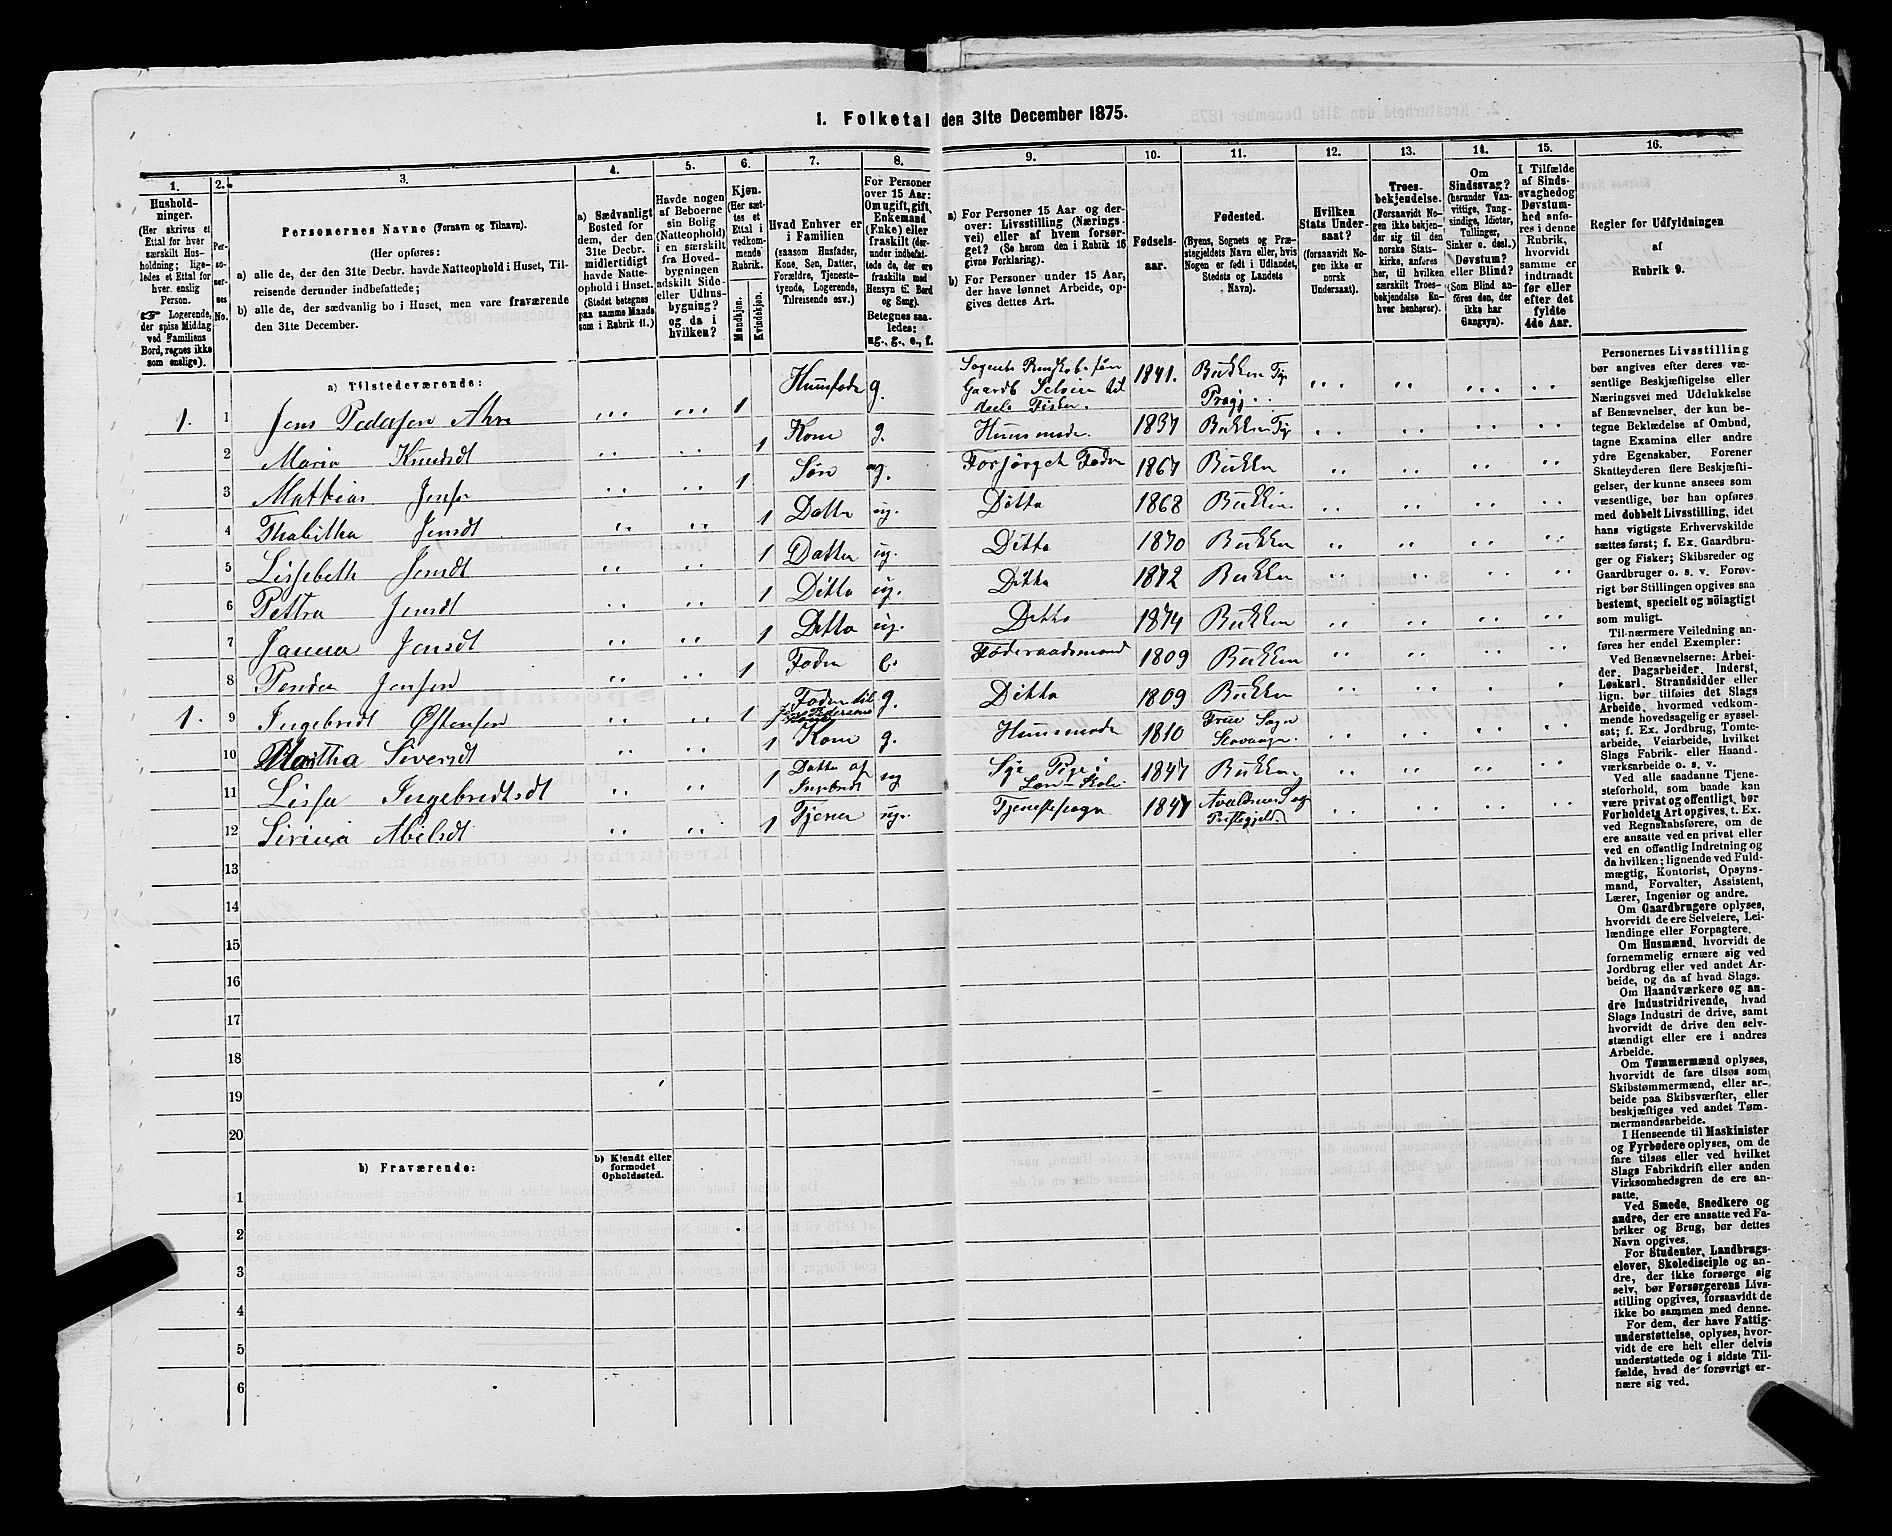 1. Folketal den 31te December 1875.
1. 2. 3. 4. 5. 6. 7. 8. 9. 10. 11. 12. 13. 14. 15. 16.
Husholdninger.
(Her skrives et
Ettal for hver
særskilt Husholdning; ligeledes et Ettal for
hver. enslig
Person.
☞ Logerende,
der spise Middag
ved Familiens
Bord, regnes ikke
som enslige).
Personernes No.
Personernes Navne (Fornavn og Tilnavn).
(Her opføres:
a) alle de, der den 31te Decbr. havde Natteophold i Huset, Tilreisende derunder indbefattede;
b) alle de, der sædvanlig bo i Huset, men vare fraværende
den 31te December.
a) Sædvanligt
Bosted for
dem, der den
31te Decbr.
midlertidigt
havde Natteophold i Huset.
(Stedet betegnes
paa samme Maade
som i Rubrik 11.)
Havde nogen
af Beboerne
sin Bolig
(Natteophold)
i en særskilt
fra Hovedbygningen
adskilt Side-
eller Udhusbygning?
og da i
hvilken?
Kjøn.
(Her sættes et
Ettal i
vedkommende
Rubrik.
Mandkjøn.
Kvindekjøn.
Hvad Enhver er
i Familien
(saasom Husfader,
Kone, Søn, Datter,
Forældre, Tjenestetyende, Logerende,
Tilreisende osv.)
For Personer
over 15 Aar:
Om ugift, gift,
Enkemand
(Enke) eller
fraskilt (derunder indbefattede de, der ere
fraskilte med
Hensyn til Bord
og Seng).
Betegnes saaledes;
ug., g., e., f.
a) For Personer 15 Aar og derover: Livsstilling (Næringsvei) eller af hvem forsørget? (Se herom den i Rubrik 16
givne Forklaring).
b) For Personer under 15 Aar,
der have lønnet Arbeide, opgives dettes Art.
Fødselsaar.
Fødested.
(Byens, Sognets og Præstegjeldets Navn eller, hvis
Nogen er født i Udlandet,
Stedets og Landets
Navn).
Hvilken
Stats Undersaat?
(forsaavidt Nogen ikke er
norsk
Undersaat).
Troesbekjendelse.
(Forsaavidt Nogen ikke bekjender sig til den
norske Statskirke, anføres
her, til hvilken
særskilt Troesbekjendelse Enhver henhører).
Om
Sindssvag?
(herunder Vanvittige, Tungsindige, Idioter,
Tullinger,
Sinker o. desl.)
Døvstum?
eller Blind?
(Som Blind anføres den, der
ikke har
Gangsyn).
I Tilfælde
af Sindssvaghed og
Døvstumhed anføres i denne
Rubrik,
hvorvidt
samme er
indtraadt
før eller
efter det
fyldte
4de Aar.
Regler for Udfyldningen
af
Rubrik 9.
a) Tilstedeværende:
1. 1 Jens Pedersen g. Gaardb Selveier til 1841. Bukken
2 Maria Knudsdt 1 Kone g. Huusmode. 1837 Bukken
3 Mathias Jensen 1 Søn ug. Forsørget Fader 1867 Bukken
4 Thabitha Jensdt 1 Datter ug. Ditto 1868 Bukken
5 Lissebeth Jensdt 1 Datter ug. Ditto 1870 Bukken
6 Pettra Jensdt 1 Ditto ug. Ditto 1872 Bukken
7 Janna Jensdt 1 Ditto ug. Ditto 1874 Bukken
8 Jensen 1 Fader e. Føderaadsmand 1809 Bukken
1. 9 Ingebrigt Østensen 1 Fader til g. Ditto 1809 Bukken
10 Martha Siversdt 1 Kone g. Huusmode 1810 Sogn
11 Lissa Ingebrigtsdt 1 Datter af ug Sye Pige i 1847 Bukken
12 Sirina Abelsdt 1 Tjener ug. 1847 Avaldsnes Præstegjeld
13
14
15
16
17
18
19
20
b) Fraværende:
b) Kjendt eller
formodet
Opholdssted.
1
2
3
4
5
6
Personernes Livsstilling
bør angives efter deres væsentlige Beskjæftigelse eller
Næringsvei med Udelukkelse
af Benævnelser, der kun betegne Beklædelse af Ombud,
tagne Examina eller andre
ydre Egenskaber. Forener
Skatteyderen flere Beskjæftigelser, der kunne ansees som
væsentlige, bør han opføres
med dobbelt Livsstilling, idet
hans vigtigste Erhvervskilde
sættes først; f. Ex. Gaardbruger og Fisker; Skibsreder og
Gaardbruger o. s. v. Forøvrigt bør Stillingen opgives saa
bestemt, specielt og nøiagtigt
som muligt.
Til nærmere Veiledning anføres her endel Exempler:
Ved Benævnelserne: Arbeider, Dagarbeider, Inderst,
Løskarl, Strandsidder eller
lign. bør tilføies det Slags
Arbeide, hvormed vedkommende hovedsagelig er sysselsat; f. Ex. Jordbrug, Tomtearbeide, Veiarbeide, hvilket
Slags Fabrik- eller Haandværksarbeide o. s. v.
Ved alle saadanne Tjenesteforhold, som baade kan
være privat og offentligt, bør
Forholdets Art opgives, t. Ex.
ved Regnskabsførere, om de
ere ansatte ved en privat eller
ved en offentlig Indretning og
da hvilken; lignende ved Fuldmægtig, Kontorist, Opsynsmand, Forvalter, Assistent,
Lærer, Ingeniør og andre.
Om Gaardbrugere oplyses,
hvorvidt de ere Selveiere, Leilændinge eller Forpagtere.
Om Husmænd, hvorvidt de
fornemmelig ernære sig ved
Jordbrug eller ved andet Arbeide, og da af hvad Slags.
Om Haandværkere og andre Industridrivende, hvad
Slags Industri de drive, samt
hvorvidt de drive den selvstændigt eller ere i andres
Arbeide.
Om Tømmermænd oplyses,
hvorvidt de fare tilsøs som
Skibstømmermænd, eller arbeide paa Skibsværfter, eller
beskjæftiges ved andet Tømmermandsarbeide.
I Henseende til Maskinister
og Fyrbødere oplyses, om de
fare tilsøs eller ved hvilket
Slags Fabrikdrift eller anden
Virksomhedsgren de ere ansatte.
Ved Smede, Snedkere og
andre, der ere ansatte ved Fabriker og Brug, bør dettes
Navn opgives.
For Studenter, Landbrugselever, Skoledisciple og andre, der ikke forsørge sig
selv, bør Forsørgerens Livsstilling opgives, forsaavidt de
ikke bo sammen med denne.
For dem, der have Fattigunderstøttelse, oplyses, hvorvidt de ere helt eller delvis
understøttede og i sidste Tilfælde, hvad de forøvrigt ernære sig ved.